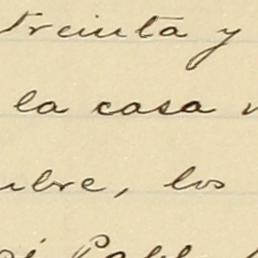 treinta y
la casa
bre, los
Pabl